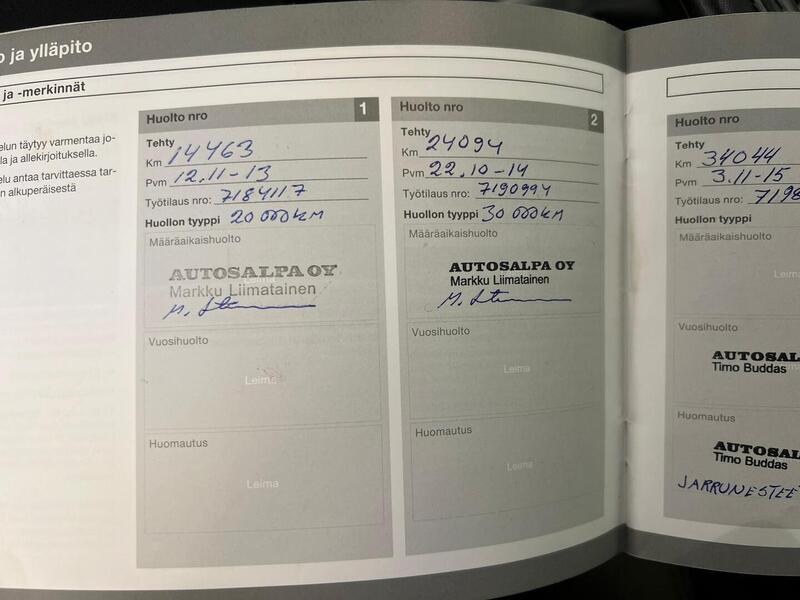 o ja ylläpito
ja -merkinnät
elun täytyy varmentaa jo-
lla ja allekirjoituksella.
elu antaa tarvittaessa tar-
n alkuperäisestä
Huolto nro 1
Tehty
Km 14463
Pvm 12.11-13
Työtilaus nro: 7184117
Huollon tyyppi 20 000 KM
Määräaikaishuolto
AUTOSALPA OY
Leima
Markku Liimatainen
Vuosihuolto
Leima
Huomautus
Leima
Huolto nro 2
Tehty
Km 24094
Pvm 22.10-14
Työtilaus nro: 7190994
Huollon tyyppi 30 000 KM
Määräaikaishuolto
AUTOSALPA OY
Markku Liimatainen
Vuosihuolto
Leima
Huomautus
Leima
Huolto nro
Tehty
Km 34044
Pvm 3.11-15
Työtilaus nro: 7198
Huollon tyyppi
Määräaikaishuolto
Leima
Vuosihuolto
AUTOSAL
Timo Buddas
Huomautus
AUTOSAL
Timo Buddas
JARRUNESTEET